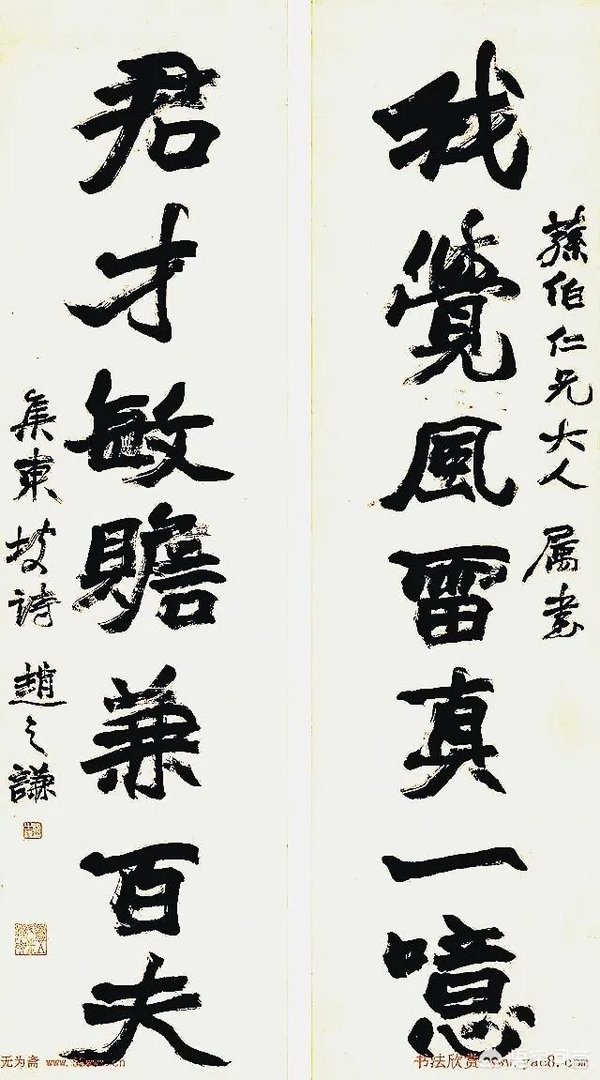 蓀伯仁兄大人 属書
我覺風雷真一噫
君才敏贍兼百夫
集東坡诗 趙之謙
无为斋
书法欣赏 www.yac8.com